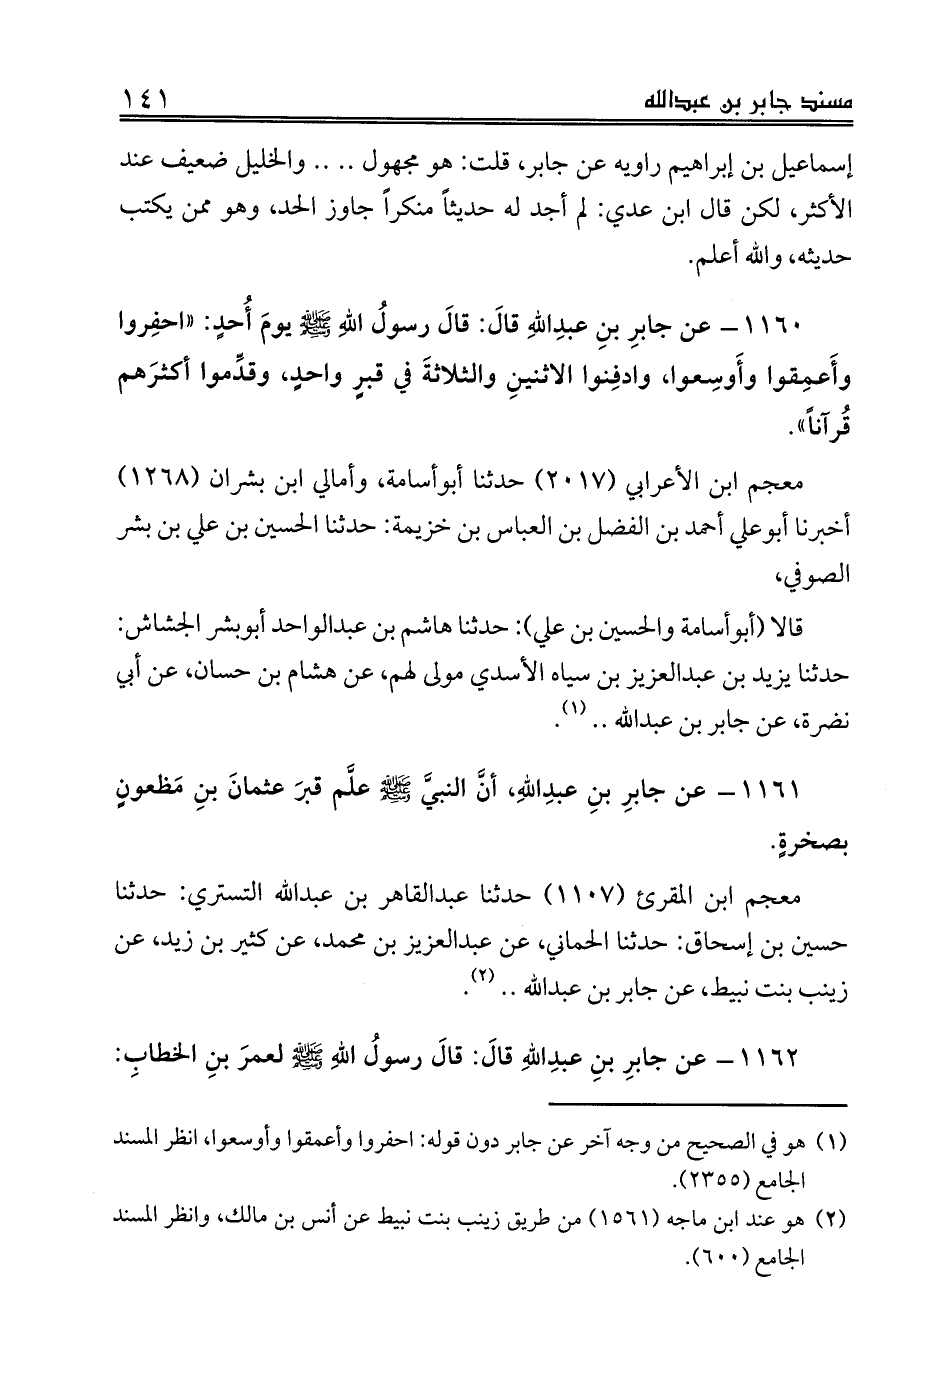 مسند جابر بن عبدالله ١٤١
إسماعيل بن إبراهيم راويه عن جابر، قلت: هو مجهول .... والخليل ضعيف عند
الأكثر، لكن قال ابن عدي: لم أجد له حديثاً منكراً جاوز الحد، وهو ممن يكتب
حديثه، والله أعلم.
١١٦٠ - عن جابرِ بنِ عبدِاللهِ قالَ: قالَ رسولُ اللهِ ﷺ يومَ أُحدٍ: «احفِروا
وأَعمِقوا وأَوسِعوا، وادفِنوا الاثنينِ والثلاثةَ في قبرٍ واحدٍ، وقدِّموا أكثرَهم
قُرآناً».
معجم ابن الأعرابي (٢٠١٧) حدثنا أبوأسامة، وأمالي ابن بشران (١٢٦٨)
أخبرنا أبوعلي أحمد بن الفضل بن العباس بن خزيمة: حدثنا الحسين بن علي بن بشر
الصوفي،
قالا (أبوأسامة والحسين بن علي): حدثنا هاشم بن عبدالواحد أبوبشر الجشاش:
حدثنا يزيد بن عبدالعزيز بن سياه الأسدي مولى لهم، عن هشام بن حسان، عن أبي
نضرة، عن جابر بن عبدالله .. (١).
١١٦١ - عن جابرِ بنِ عبدِاللهِ، أنَّ النبيَّ ﷺ علَّم قبرَ عثمانَ بنِ مَظعونٍ
بصخرةٍ.
معجم ابن المقرئ (١١٠٧) حدثنا عبدالقاهر بن عبدالله التستري: حدثنا
حسين بن إسحاق: حدثنا الحماني، عن عبدالعزيز بن محمد، عن كثير بن زيد، عن
زينب بنت نبيط، عن جابر بن عبدالله .. (٢).
١١٦٢ - عن جابرِ بنِ عبدِاللهِ قالَ: قالَ رسولُ اللهِ ﷺ لعمرَ بنِ الخطابِ:
(١) هو في الصحيح من وجه آخر عن جابر دون قوله: احفروا وأعمقوا وأوسعوا، انظر المسند
الجامع (٢٣٥٥).
(٢) هو عند ابن ماجه (١٥٦١) من طريق زينب بنت نبيط عن أنس بن مالك، وانظر المسند
الجامع (٦٠٠).